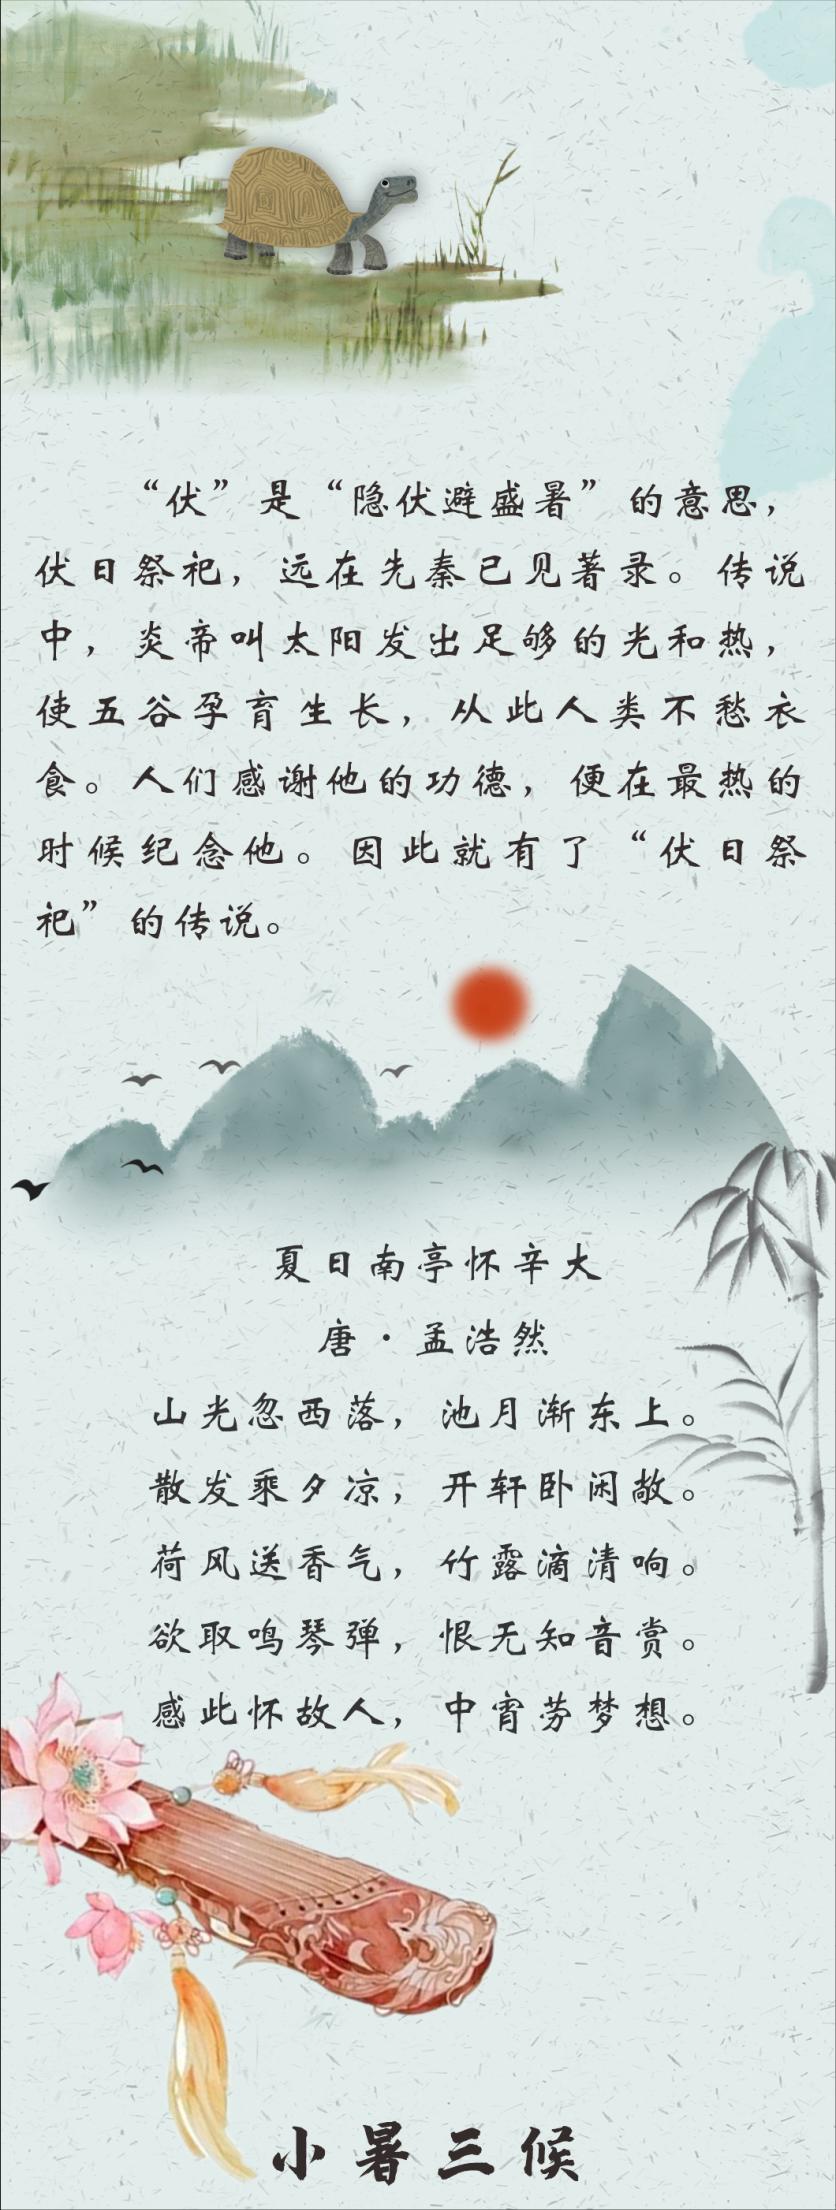 “伏”是“隐伏避盛暑”的意思，
伏日祭祀，远在先秦已见著录。传说
中，炎帝叫太阳发出足够的光和热，
使五谷孕育生长，从此人类不愁衣
食。人们感谢他的功德，便在最热的
时候纪念他。因此就有了“伏日祭
祀”的传说。
夏日南亭怀辛大
唐·孟浩然
山光忽西落，池月渐东上。
散发乘夕凉，开轩卧闲敞。
荷风送香气，竹露滴清响。
欲取鸣琴弹，恨无知音赏。
感此怀故人，中宵劳梦想。
小暑三候